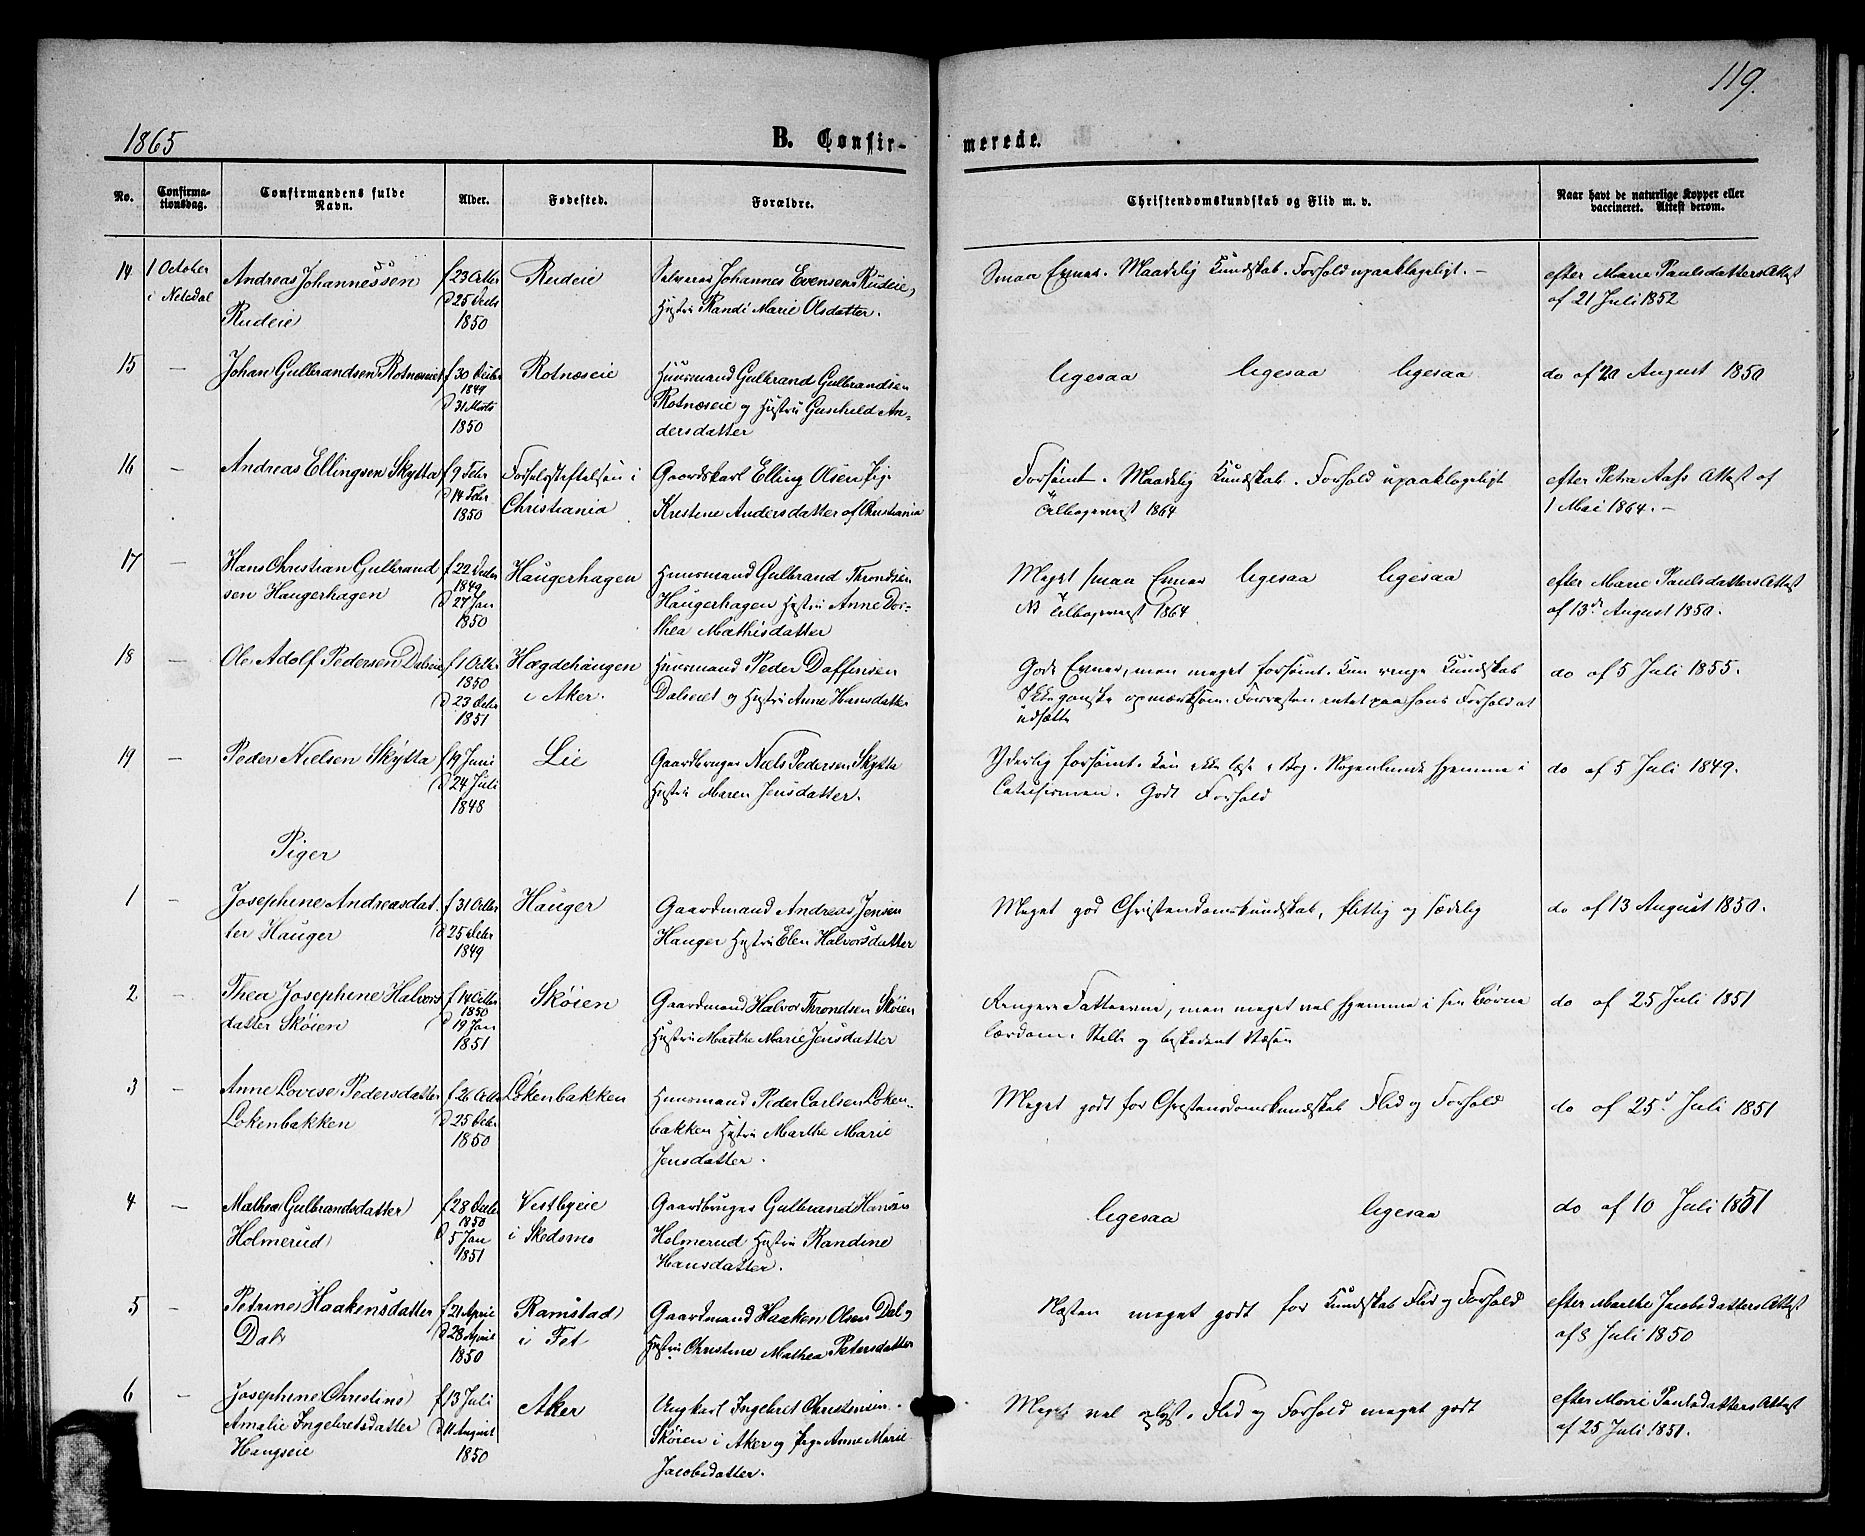 119.
1865
B. Confirmerede.
No.
Confirmationsdag.
Confirmandens fulde Navn.
Alder.
Fødested.
Forældre.
Christendomskundskab og Flid m. v.
Naar havt de naturlige Kopper eller vaccineret. Attest derom.
14 1 October i Nitedal
Andreas Johannessen
Rudeie
f 23 Octbr
d 25 Decbr
1850
Rudeie
Johannes Evensen Rudeie,
Hustru Randi Marie Olsdatter.
Smaa Evner. Maadelig Kundskab. Forhold upaaklageligt. —
efter Marie Paulsdatters Attest
af 21 Juli 1852
15 —
Johan Gulbrandsen Rotnæseiet
f 30 Decbr
1849
d 31 Marts
1850
Rotnæseie
Huusmand Gulbrand Gulbrandsen
Rotnæseie og Hustru Gunhild An-
dersdatter
ligesaa ligesaa ligesaa
do af 20 August 1850
16 —
Andreas Ellingsen Skytta
f 9 Febr
d 14 Febr
1850
Fødselsstiftelsen i
Christiania
Gaardskarl Elling Olsen Pige
Kristine Andersdatter af Christiania
Forsømt. Maadelig Kundskab. Forhold upaaklageligt
Tilbageviist 1864
efter Petra Aas's Attest af
1 Mai 1864. —
17 —
Hans Christian Gulbrand
sen Haugerhagen
f 22 Decbr
1849
d 27 Jan
1850
Haugerhagen
Huusmand Gulbrand Throndsen
Haugerhagen Hustru Anne Dor-
thea Mathisdatter
Meget smaa Evner ligesaa ligesaa
NB Tilbageviist 1864
efter Marie Paulsdatters Attest
af 13de August 1850.
18 —
Ole Adolf Pedersen Dalseie
f 1 Octbr
1850
d 23 Octbr
1851
Hægdehaugen
i Aker.
Huusmand Peder Doffensen
Dalseiet og Hustru Anne Hansdatter
Gode Evner, men meget forsømt. Kun ringe Kundskab
Ikke ganske opmærksom. Forresten intet paa hans Forhold at
udsætte
do af 5 Juli 1855.
19 —
Peder Nielsen Skytta
f 19 Juni
d 24 Juli
1848
Lie
Gaardbruger Niels Pedersen Skytta
Hustru Maren Jensdatter.
Yderlig forsømt. Kan ikke læse i Bog. Nogenlunde hjemme i
Catechismen. Godt Forhold
do af 5 Juli 1849.
Piger
1 —
Josephine Andreasdat
ter Hauger
f 31 Octbr
d 25 Decbr
1849
Hauger
Gaardmand Andreas Jensen
Hauger Hustru Elen Halvorsdatter
Meget god Christendomskundskab, flittig og sædelig
do af 13 August 1850.
2 —
Thea Josephine Halvors
datter Skøien
f 14 Octbr
1850
d 19 Jan
1851
Skøien
Gaardmand Halvor Throndsen Skøien
Hustru Marthe Marie Jensdatter
Ringere Fatteevne, men meget vel hjemme i sin Børne
lærdom. Stille og beskedent Væsen
do af 25 Juli 1851
3 —
Anne Lovise Pedersdatter
Løkenbakken
f 26 Octbr
d 25 Decbr
1850
Løkenbakken
Huusmand Peder Carlsen Løken-
bakken Hustru Marthe Marie
Jensdatter.
Meget godt for Christendomskundskab Flid og Forhold
do af 25de Juli 1851
4 —
Mathea Gulbrandsdatter
Holmerud
f 28 Decbr
1850
d 5 Jan
1851
Vestbyeie
i Skedsmo
Gaardbruger Gulbrand Hansen
Holmerud Hustru Randine
Hansdatter.
ligesaa ligesaa
do af 10 Juli 1851
5 —
Petrine Haakensdatter
Dal
f 21 April
d 28 April
1850
Ramstad
i Fet
Gaardmand Haaken Olsen Dal og
Hustru Christine Mathea Petersdatter
Næsten meget godt for Kundskab Flid og Forhold
efter Marthe Jacobsdatters Attest
af 8 Juli 1850
6 —
Josephine Christine
Amalie Ingebretsdatter
Haugseie
f 13 Juli
d 11 August
1850
Aker
Ungkarl Ingebret Christensen
Skøien i Aker og Pige Anne Marie
Jacobsdatter.
Meget vel oplyst. Flid og Forhold meget godt
efter Marie Paulsdatters Attest
af 25 Juli 1851.